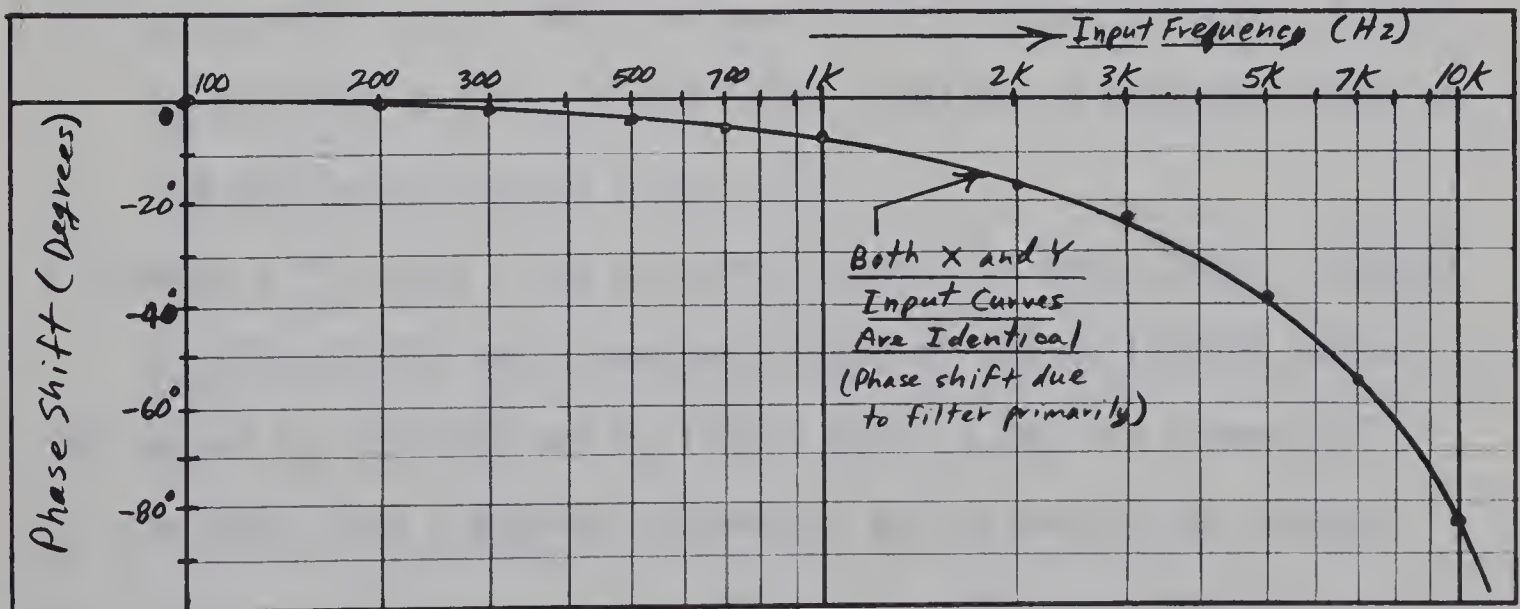 Input Frequency (Hz)
100 200 300 500 700 1K 2K 3K 5K 7K 10K
0
-20°
-40°
-60°
-80°
Phase Shift (Degrees)
Both X and Y
Input Curves
Are Identical
(Phase shift due
to filter primarily)